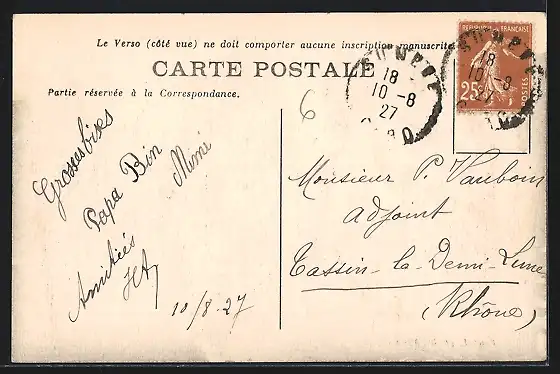 Le Verso (côté vue) ne doit comporter aucune inscription manuscrite
CARTE POSTALE
Partie réservée à la Correspondance.
Grosses bises
Papa Bin
Mimi
Amitiés
10/8-27
6
18
10-8
27
RÉPUBLIQUE FRANÇAISE
25c
POSTES
18
10-8
Monsieur P. Vauboin
adjoint
Tassin-la-Demi-Lune
(Rhône)